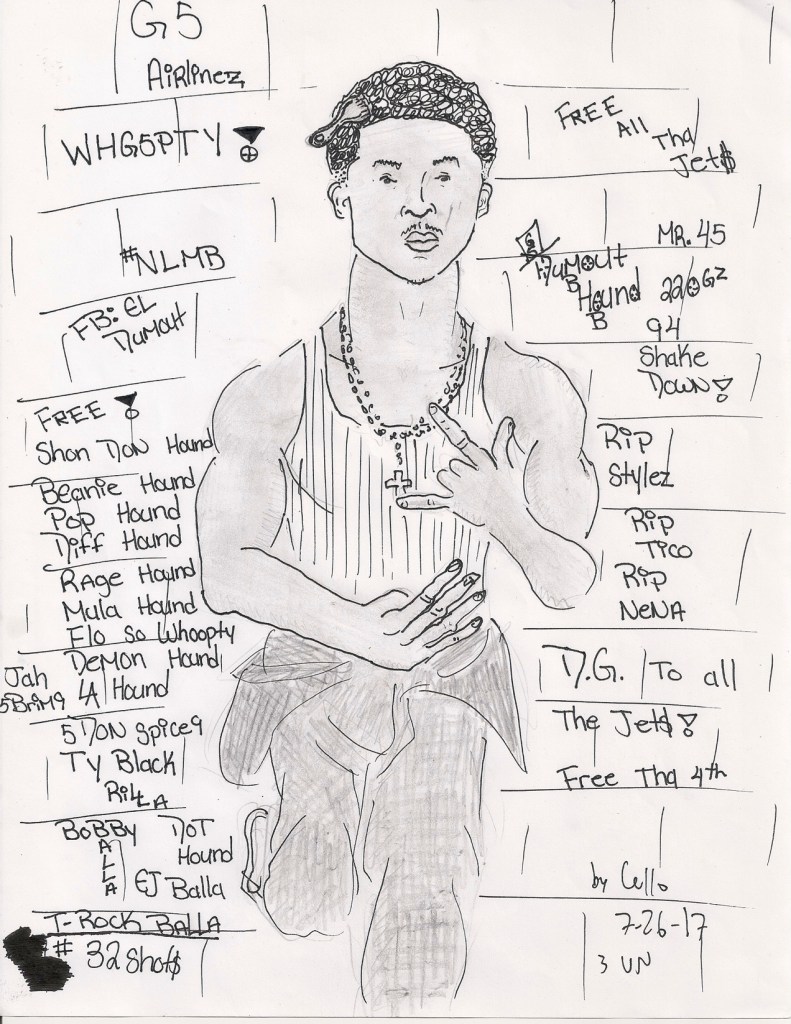 G5
AirlineZ
WHG5PTY
#NLMB
FB: EL
DUMOUt
FREE
Shon DON Hound
Beanie Hound
Pop Hound
Diff Hound
RAge Hound
Mula Hound
Flo So Whoopty
DEMON Hound
Jah
5BriM9
LA Hound
5 DON Spice9
Ty Black
RiLLA
BoBBy DOT
Hound
ALLA
EJ Balla
T-ROCK BALLA
# 32 Shot$
FREE
All
Tha
Jet$
MR. 45
DuMOUt
B Hound 220Gz
B
94
Shake
DOWN!
Rip
Stylez
Rip
Tico
Rip
NeNA
D.G. To all
The Jet$!
Free Tha 4th
by Cello
7-26-17
3 UN